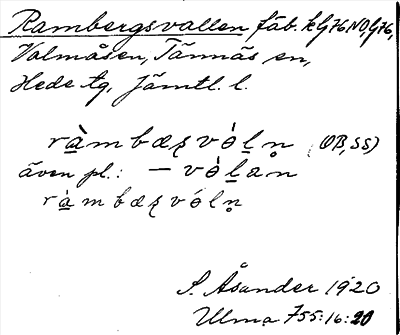 Rambergsvallen fäb. kG76NO,G76,
Valmåsen, Tännäs sn,
Hede tg, Jämtl. l.
ràmbæʒvòl̥n̥ (OB,SS)
även pl.: – vòlan
ràmbæʒvóln̥
S. Åsander 1920
Ulma 755:16:20